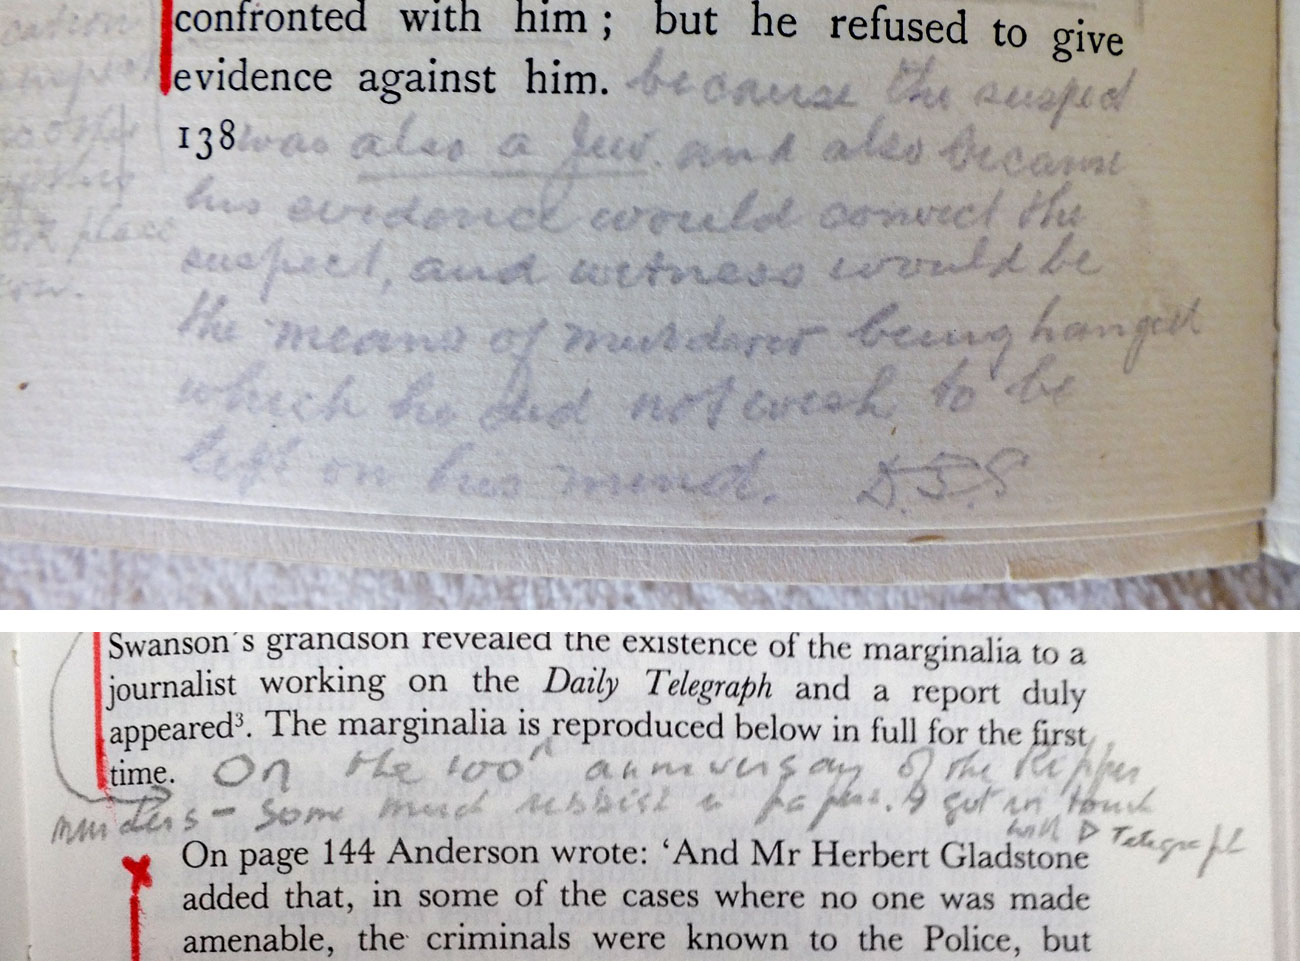 confronted with him; but he refused to give
evidence against him. because the suspect
138 was also a Jew. and also because
his evidence would convict the
suspect, and witness would be
the means of murderer being hanged
which he did not wish to be
left on his mind. D.S.S
place
Swanson's grandson revealed the existence of the marginalia to a
journalist working on the Daily Telegraph and a report duly
appeared³. The marginalia is reproduced below in full for the first
time. On the 100th anniversary of the Ripper
murders - some much rubbish in papers. I got in touch
with D Telegraph
On page 144 Anderson wrote: ‘And Mr Herbert Gladstone
added that, in some of the cases where no one was made
amenable, the criminals were known to the Police, but